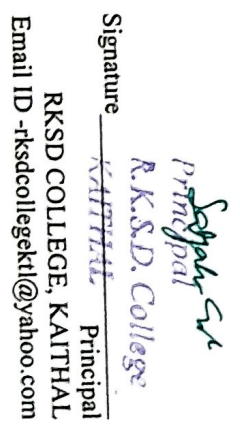 Principal
R.K.S.D. College
KAITHAL
Signature
Principal
RKSD COLLEGE, KAITHAL
Email ID -rksdcollegektl@yahoo.com